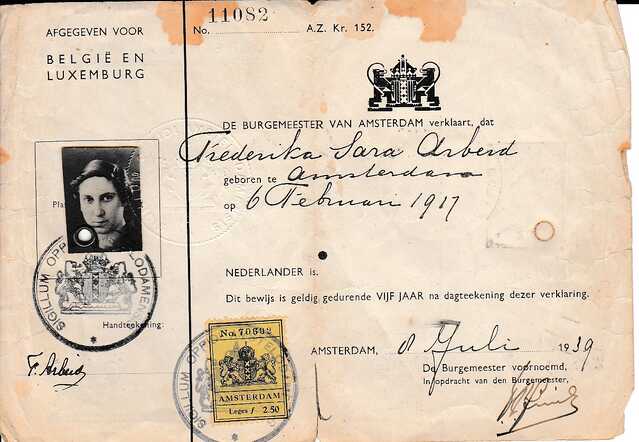 AFGEGEVEN VOOR
BELGIË EN
LUXEMBURG
No. 11082 A.Z. Kr. 152.
DE BURGEMEESTER VAN AMSTERDAM verklaart, dat
Frederika Sara Arbeid
geboren te Amsterdam
op 6 Februari 1917
NEDERLANDER is.
Dit bewijs is geldig gedurende VIJF JAAR na dagteekening dezer verklaring.
AMSTERDAM, 8 Juli 1939
De Burgemeester voornoemd,
In opdracht van den Burgemeester,
SIGILLUM OPP
LODAMENSIS
Handteekening:
F. Arbeid
No. 70692
AMSTERDAM
Leges f 2.50
SIGILLUM OPP